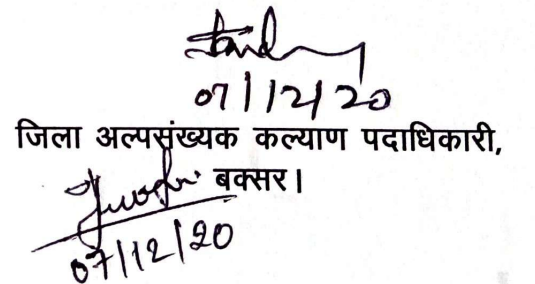 07/12/20
जिला अल्पसंख्यक कल्याण पदाधिकारी,
बक्सर।
07/12/20